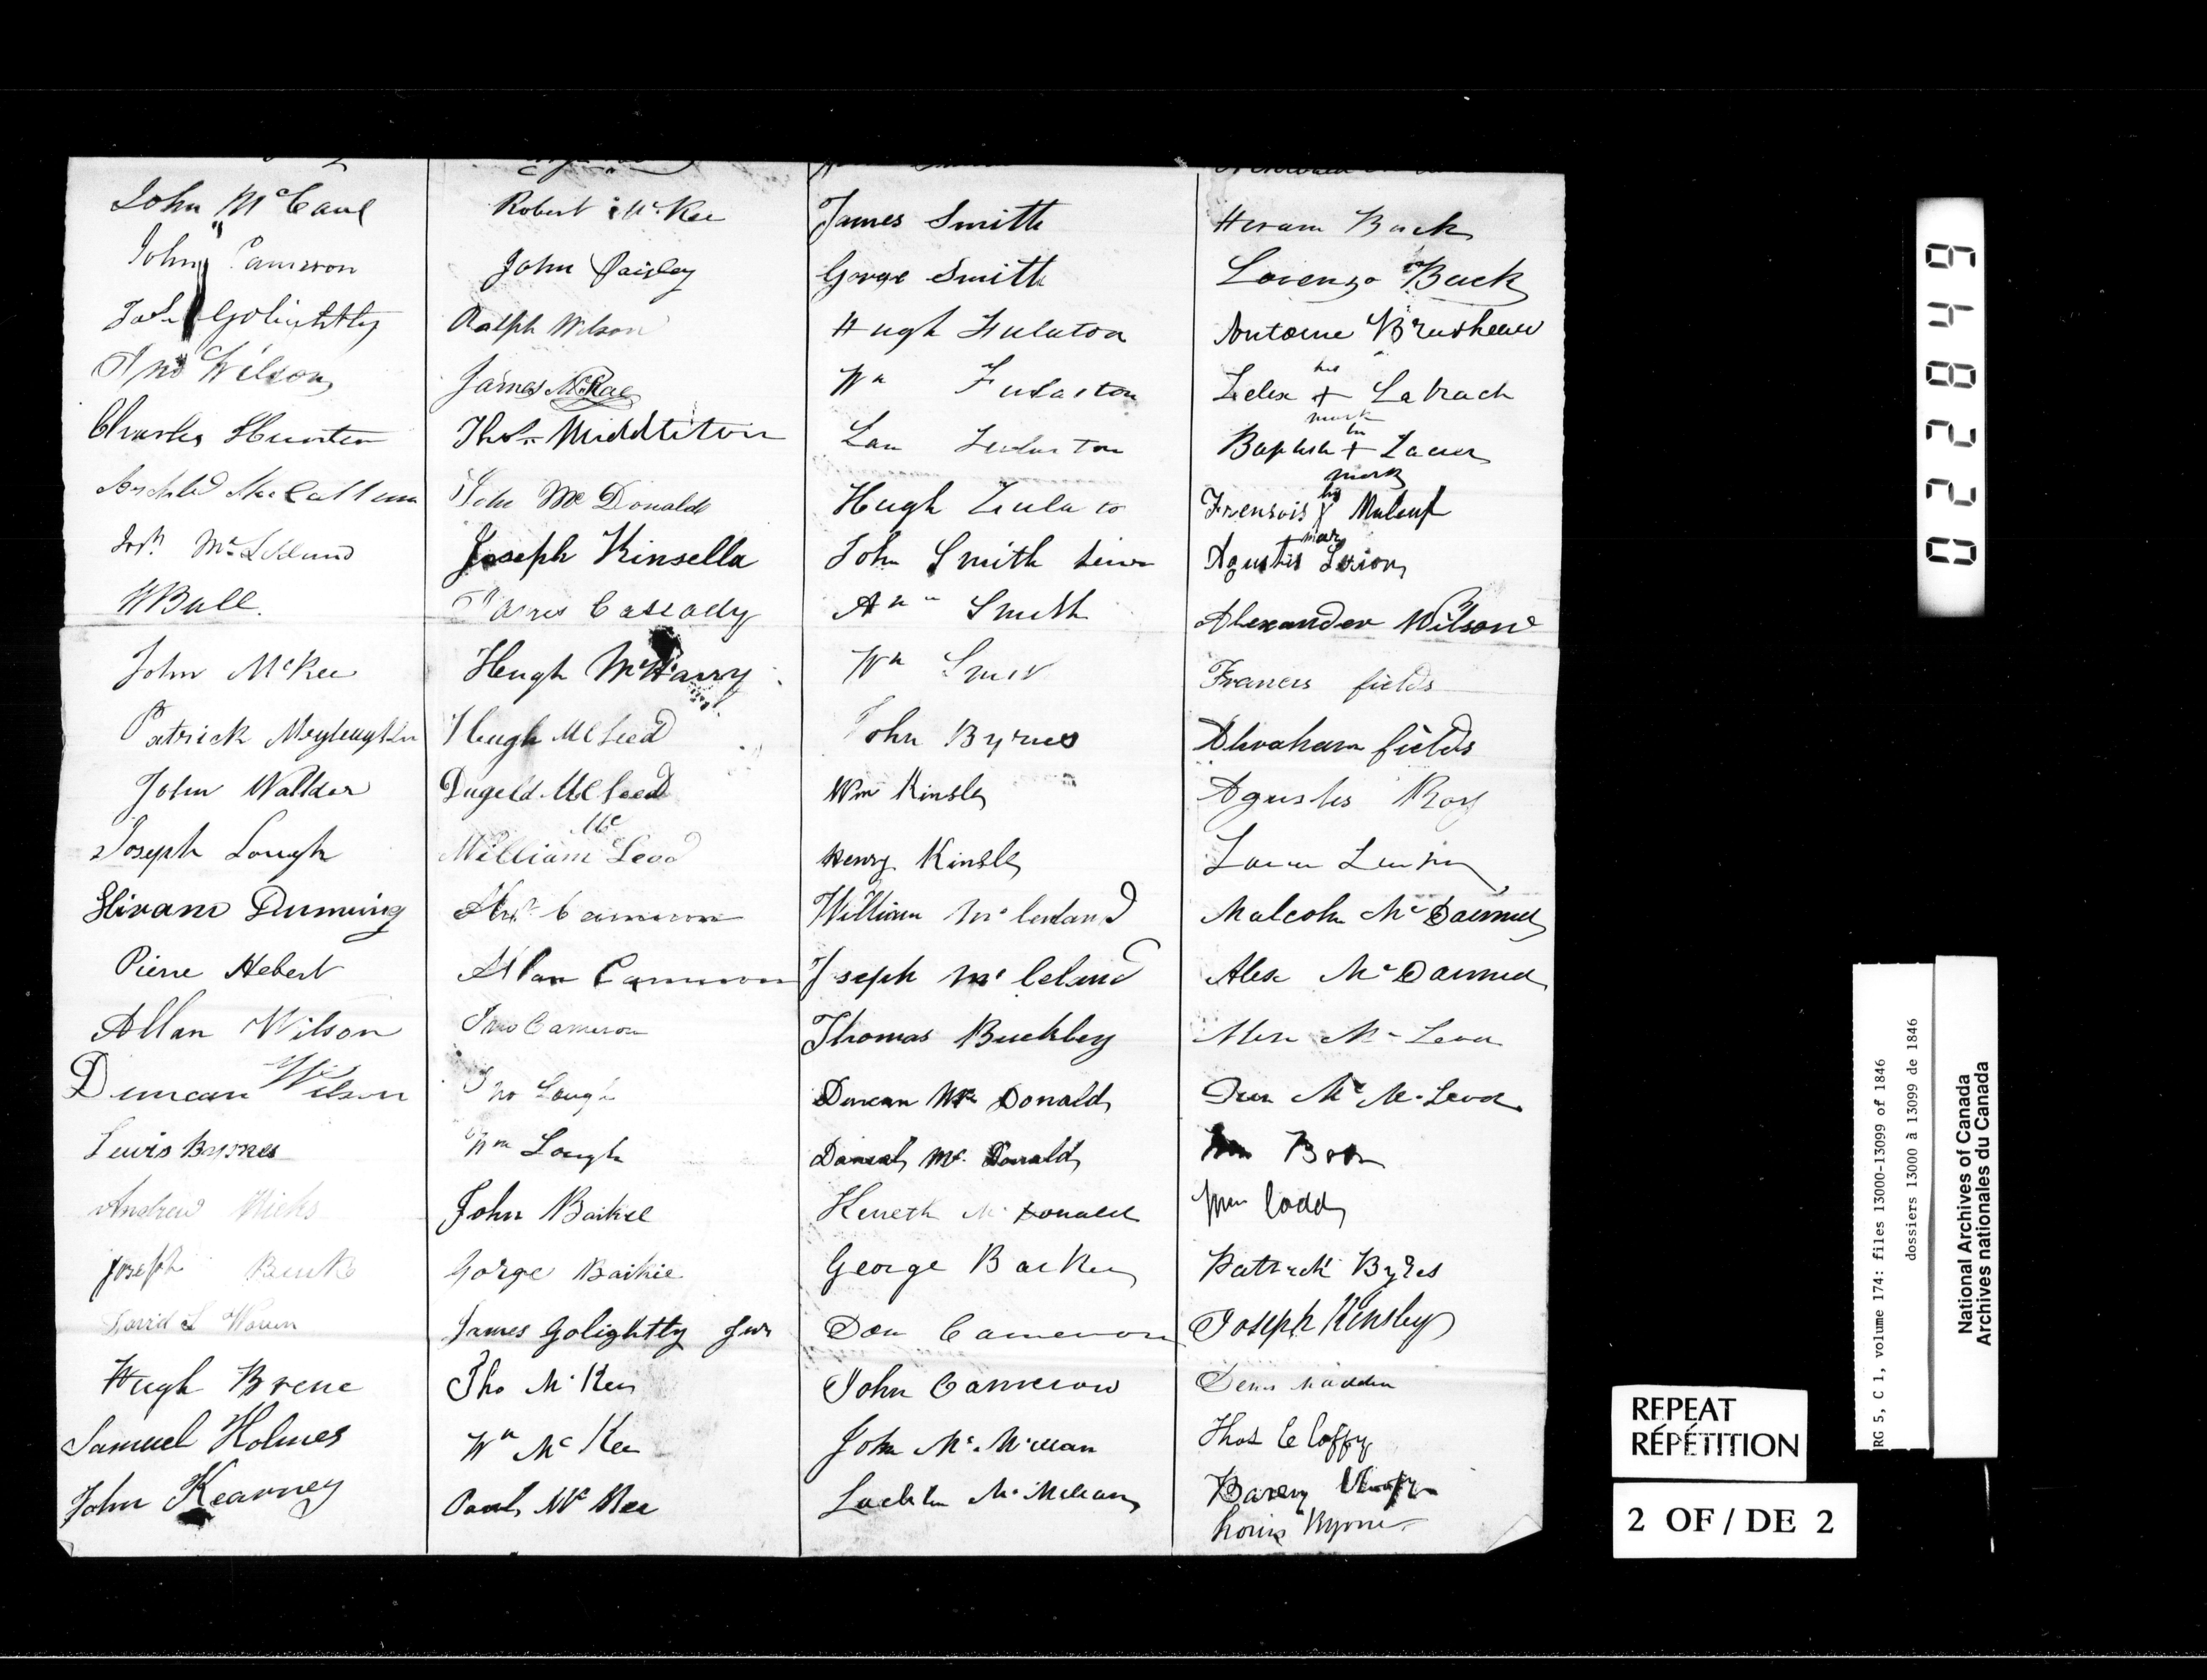 John McCaul
John Cameron
Jas Golightly
Jno Wilson
Charles Hunter
Archld MacCallum
Josh McLelland
W Ball.
John McKee
Patrick
John Wallder
Joseph Lough
Hiram Dunning
Pierre Hebert
Allan Wilson
Duncan Wilson
Lewis Byrnes
Andrew Hicks
Joseph
David S Waren
Hugh Brene
Samuel Holmes
John Kearney
Robert McKee
John Paisley
Ralph Wilson
James McRae
Thos Middleton
John McDonald
Joseph Kinsella
James Cassady
Hugh McHarry
Hugh McLeod
Dugeld McLeod
William McLeod
Cameron
Allan Cameron
Jno Cameron
Jno Lough
Wm Lough
John Baikie
Gorge Baikie
James Golightly Junr
Tho McKee
Wm McKee
Paul McKee
James Smith
Gorge Smith
Hugh Fulaton
Wm Fulaston
Hugh
John Smith
Smith
Wm
John Byrnes
Wm Kinsly
Henry Kinsly
William McCleland
Joseph McCleland
Thomas Buckley
Duncan McDonald
Daniel McDonald
Keneth McDonald
George Barker
Don Cameron
John Cameron
John McMillan
Lachlin McMillan
Hiram Buck
Lorenzo Buck
Antoine Brusheau
his
Felix + Labrach
mark
his
Baptiste +
mark
his
Frensois X Maleuf
mark
Agustis
Alexander Wilson
Francis fields
Abraham fields
Agustes Roy
Malcolm McDarmid
Alex McDarmid
Alex McLeod
McLeod
Boon
Wm Codd
Patrick Byres
Joseph Kinsley
Denis Madden
Thos C Coffy
Barny
Louis Byrne
0 2 2 8 4 9
RG 5, C 1, volume 174: files 13000-13099 of 1846
dossiers 13000 à 13099 de 1846
National Archives of Canada
Archives nationales du Canada
REPEAT
RÉPÉTITION
2 OF / DE 2